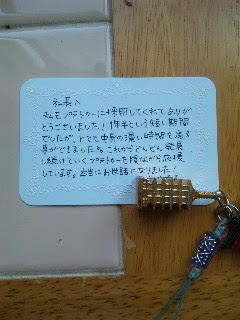 社長へ
私をプラチナカーに採用してくれてありが
とうございました!1年半という短い期間
でしたが、とても中身の濃い時間を送る
事ができましたね。これからどんどん発展
し続けていくプラチナカーを陰ながら応援
しています。本当にお世話になりました!